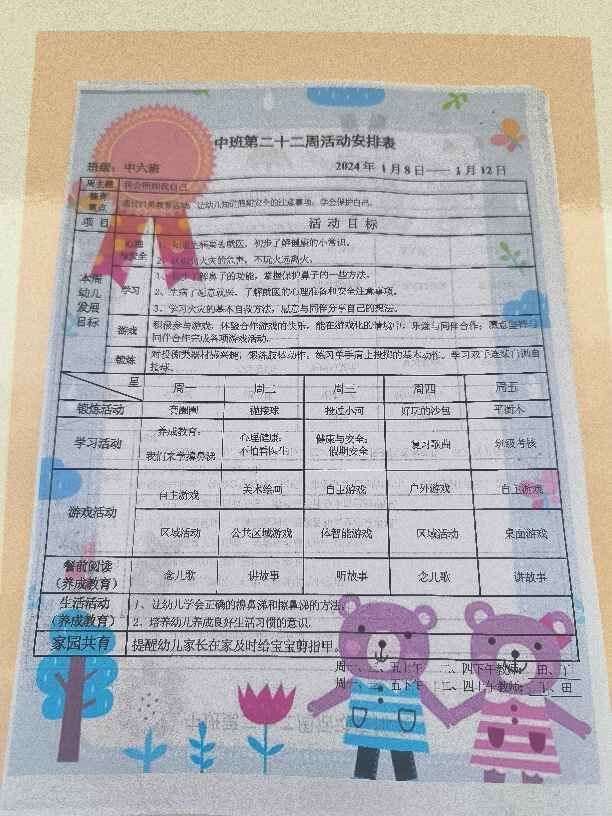 中班第二十二周活动安排表
班级：中六班 2024年1月8日——1月12日
周主题 我会照顾我自己
教育重点 让幼儿知道假期安全的注意事项，学会保护自己。
项目 活动目标
本周幼儿发展目标
心理与安全 1、知道生病要去就医，初步了解健康的小常识。
2、知道火灾的危害，不玩火远离火。
学习 1、了解鼻子的功能，掌握保护鼻子的一些方法。
2、生病了愿意就医，了解就医的心理准备和安全注意事项。
3、学习火灾的基本自救方法，愿意与同伴分享自己的想法。
游戏 积极参与游戏，体验合作游戏的快乐，能在游戏化的情境中，乐意与同伴合作；愿意坚持与
同伴合作完成各项游戏活动。
锻炼 对投掷类器材感兴趣，锻炼肢体动作，练习单手肩上投掷的基本动作。学习双手连续向
拍球。
星 周一 周二 周三 周四 周五
锻炼活动 套圈圈 碰接球 投过小河 好玩的沙包 平衡木
学习活动 养成教育：我们来学擤鼻涕 心理健康：不怕看医生 健康与安全：假期安全 复习歌曲 班级考核
游戏活动 自主游戏 美术绘画 自主游戏 户外游戏 自主游戏
区域活动 公共区域游戏 体智能游戏 区域活动 桌面游戏
餐前阅读（养成教育） 念儿歌 讲故事 听故事 念儿歌 讲故事
生活活动（养成教育） 1、让幼儿学会正确的擤鼻涕和擦鼻涕的方法。
2、培养幼儿养成良好生活习惯的意识。
家园共育 提醒幼儿家长在家及时给宝宝剪指甲。
周一、三、五上午 二、四下午教师：田、丁
周一、三、五下午 二、四上午教师：丁、田